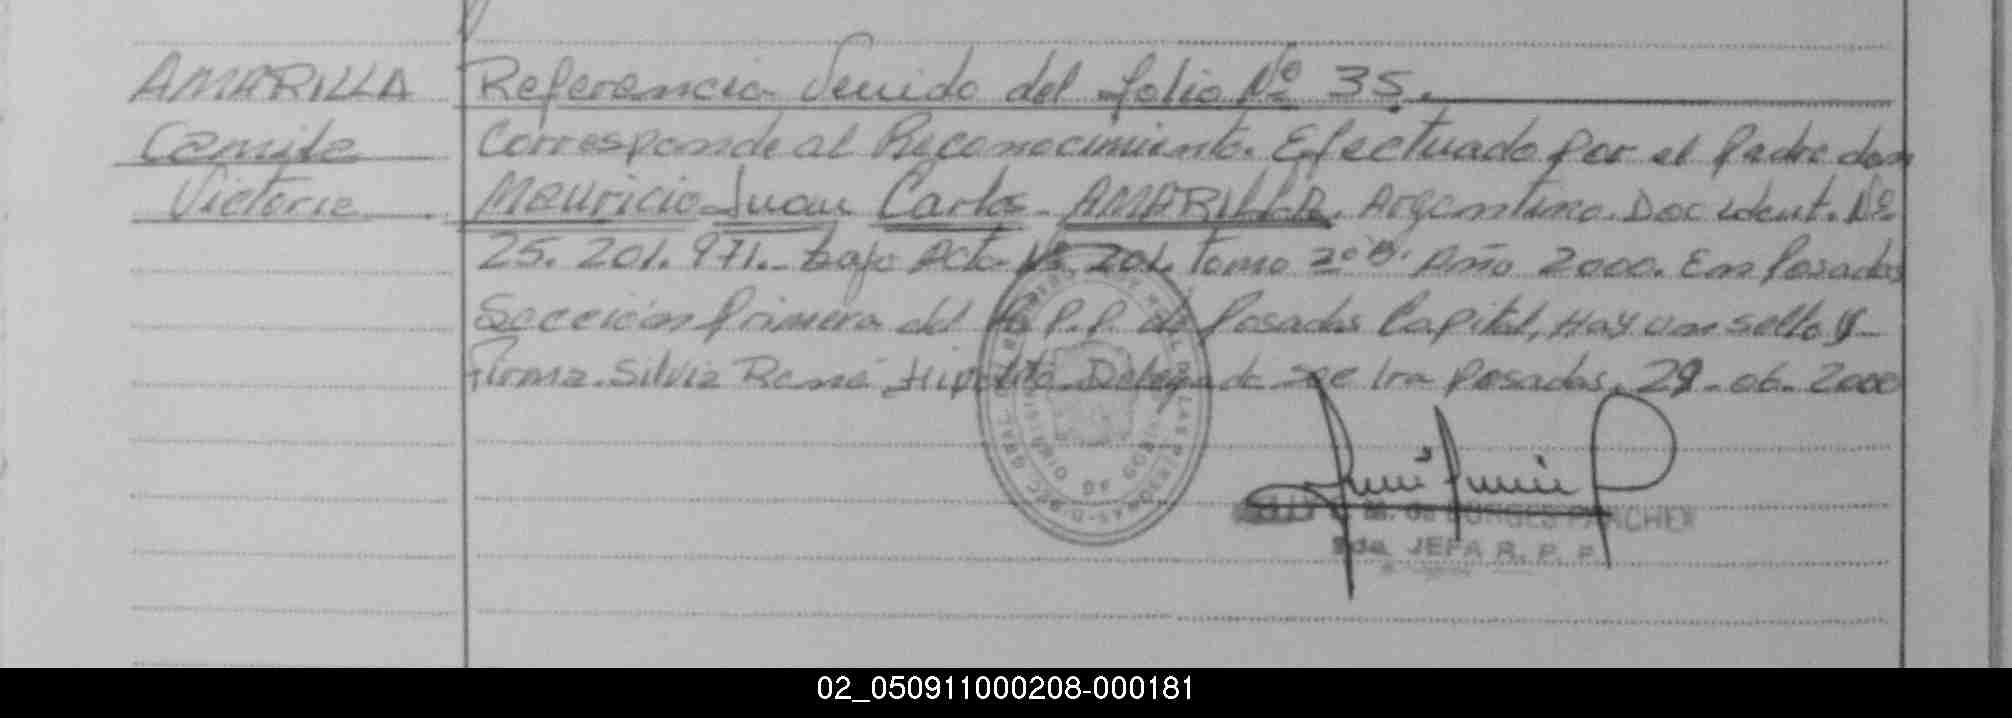 AMARILLA
Camila
Victoria
Referencia Venido del folio Nº 35.
Corresponde al Reconocimiento. Efectuado por el padre don
Mauricio Juan Carlos AMARILLA. Argentino. Doc. ident. Nº
25.201.971. bajo Acta Nº 201. tomo 2º B. Año 2000. En Posadas
Sección Primera del R.P.P. de Posadas Capital, Hay un sello y
firma. Silvia René Hipólito Delegada Sec 1ra Posadas, 29-06-2000
M. de BORGES
JEFA R. P. P.
MINISTERIO DE GOBIERNO
02_050911000208-000181